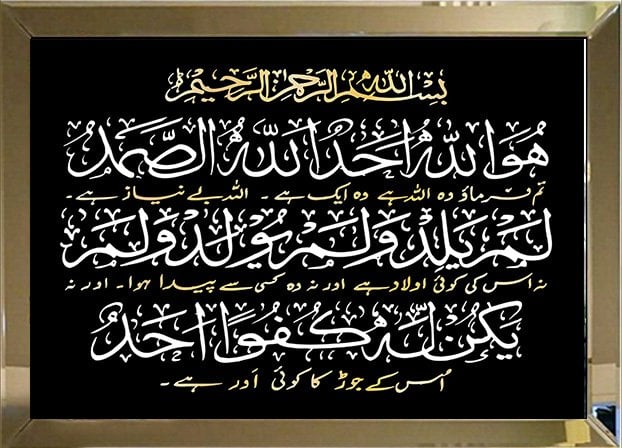 بسم الله الرحمن الرحيم
هُوَ اللّٰهُ اَحَدٌ اللّٰهُ الصَّمَدُ
تم فرماؤ وہ اللہ ہے وہ ایک ہے۔ اللہ بے نیاز ہے۔
لَمْ يَلِدْ وَلَمْ يُولَدْ وَلَمْ
نہ اس کی کوئی اولاد ہے اور نہ وہ کسی سے پیدا ہوا۔ اور نہ
يَكُنْ لَّهٗ كُفُوًا اَحَدٌ
اُس کے جوڑ کا کوئی اَور ہے۔